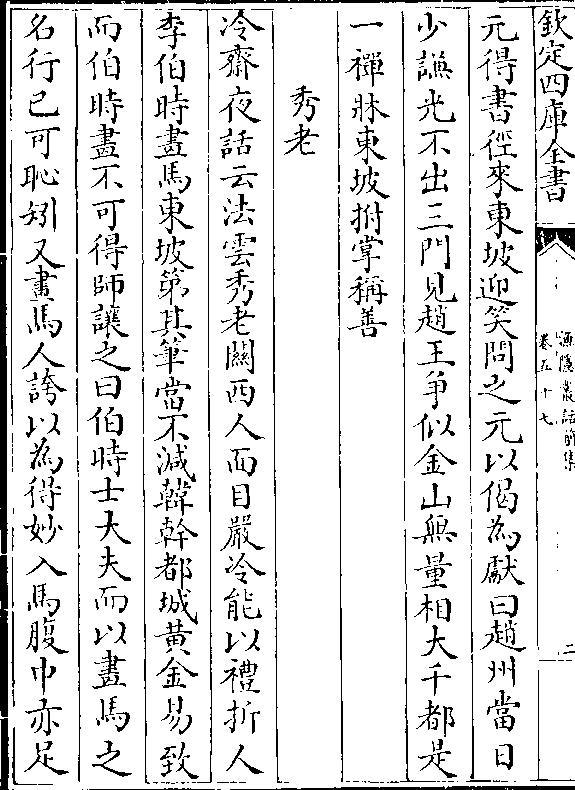 欽定四庫全書
漁隱叢話前集
卷五十七
二
元得書徑來東坡迎笑問之元以偈為獻曰趙州當日
少謙光不出三門見趙王争似金山無量相大千都是
一禪牀東坡拊掌稱善
秀老
冷齋夜話云法雲秀老關西人面目嚴冷能以禮折人
李伯時畫馬東坡第其筆當不減韓幹都城黃金易致
而伯時畫不可得師讓之曰伯時士大夫而以畫馬之
名行已可恥矧又畫馬人誇以為得妙入馬腹中亦足